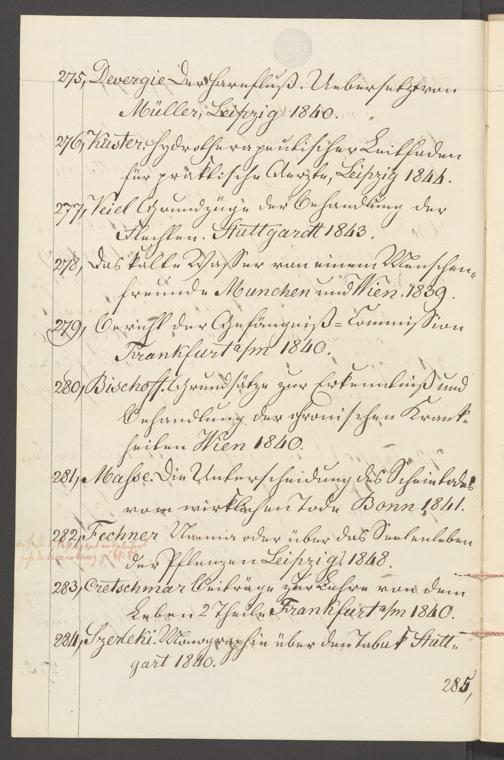 275, Devergie Der Harnfluß. Uebersetzt von
Müller, Leipzig 1840.
276, Kuster. Hydrotherapeutischer Leitfaden
für praktische Aerzte, Leipzig 1844.
277, Veiel Grundzüge der Behandlung der
Flechten. Stuttgardt 1843.
278, Das kalte Wasser von einem Menschen-
freunde Munchen und Wien. 1839.
279, Bericht der Gefängniß-Commission
Frankfurt a/m 1840.
280, Bischoff. Grundsätze zur Erkenntniß und
Behandlung der chronischen Krank-
heiten Wien 1840.
281, Masse. Die Unterscheidung des Scheintodes
vom wirklichen Tode Bonn 1841.
282, Fechner Nanna oder über das Seelenleben
der Pflanzen Leipzig 1848.
283, Cretschmar Beiträge zur Lehre von dem
Leben 2 Theile Frankfurt a/m 1840.
284, Szerleki. Monographie über den Tabak Stutt-
gart 1840.
285,